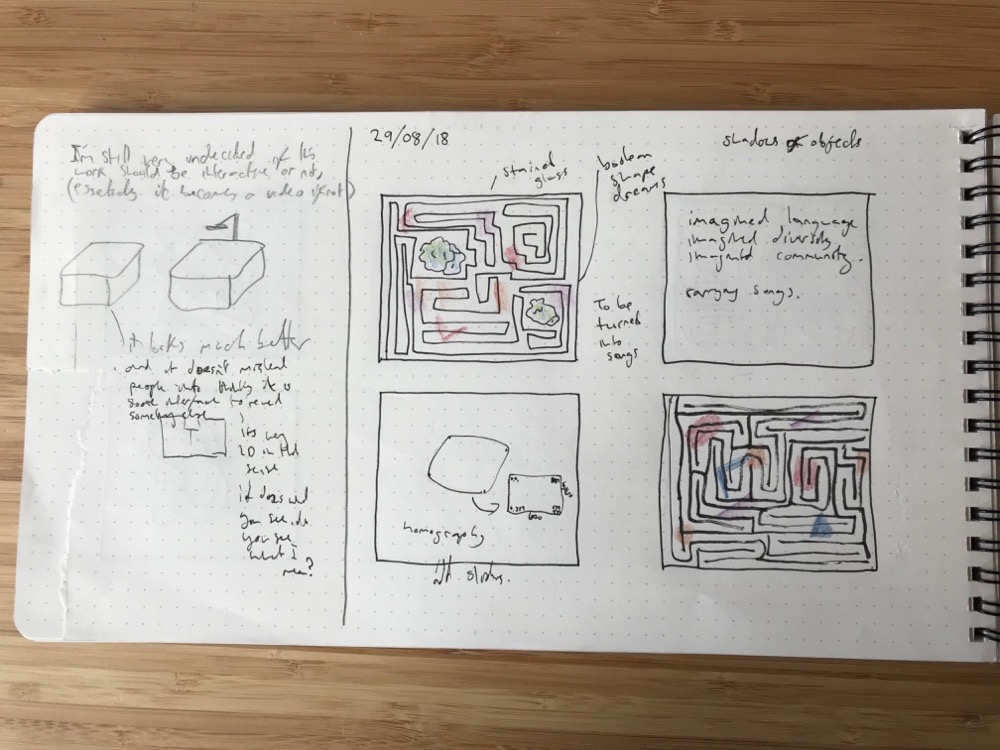 I'm still very undecided if this
work should be interactive or not,
(essentially it becomes a video if not)
it looks much better
and it doesn't mislead
people into thinking it is
some interface to reveal
something else
T
its very
2D in that
sense
it does and
you see. do
you see
what I
mean?
29/08/18
stained
glass
boolean
shape
dreams
To be
turned
into
songs
shadows of objects
imagined language
imagined diversity
imagined community.
songs.
homography